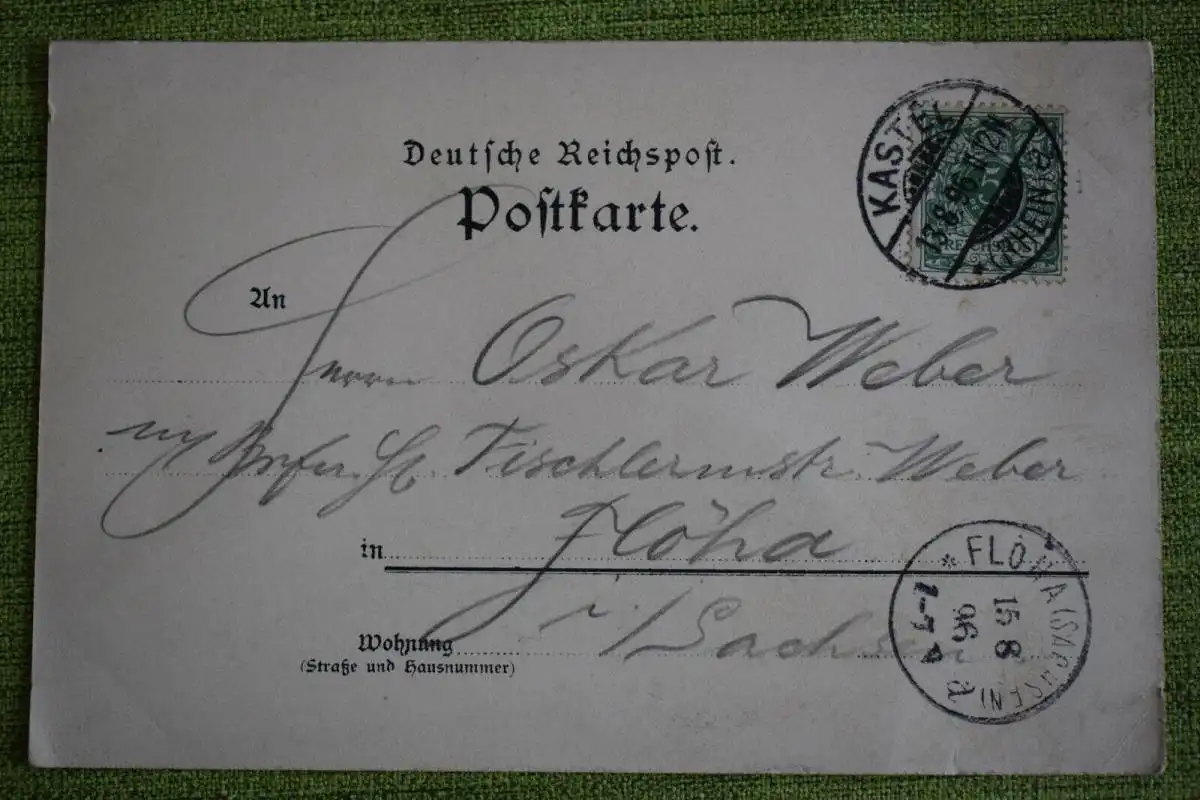 Deutsche Reichspost.
Postkarte.
KASTEL
13.8.96. 11-12N.
* (RHEIN)
An
Herrn Oskar Weber
Tischlermstr. Weber
in Flöha
i/Sachsen
Wohnung
(Straße und Hausnummer)
* FLÖHA (SACHSEN)
15 8
96
1-7
a